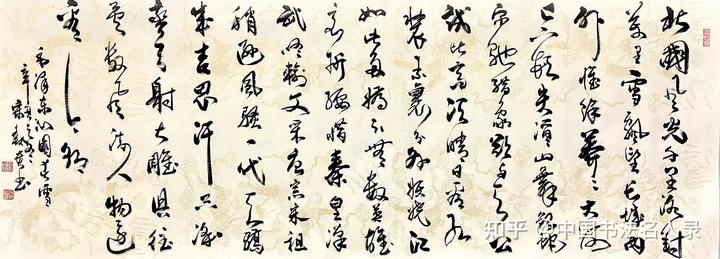 北國風光千里冰封
萬里雪飄望長城內
外惟餘莽莽大河
上下頓失滔滔山舞銀蛇
原馳蠟象欲與天公
試比高須晴日看紅
裝素裹分外妖嬈江
山如此多嬌引無數英雄
競折腰惜秦皇漢
武略輸文采唐宗宋祖
稍遜風騷一代天驕
成吉思汗只識
彎弓射大雕俱往
矣數風流人物還
看今朝
毛澤東沁園春雪
知乎 @中国书法名人录